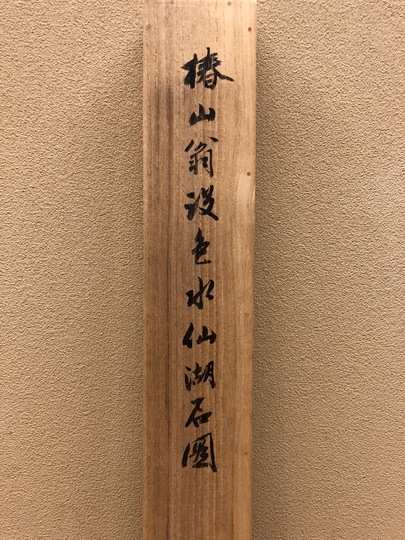 椿山翁設色水仙湖石圖